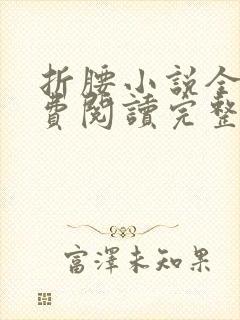 折腰小说全
費閱讀完整
富澤未知果